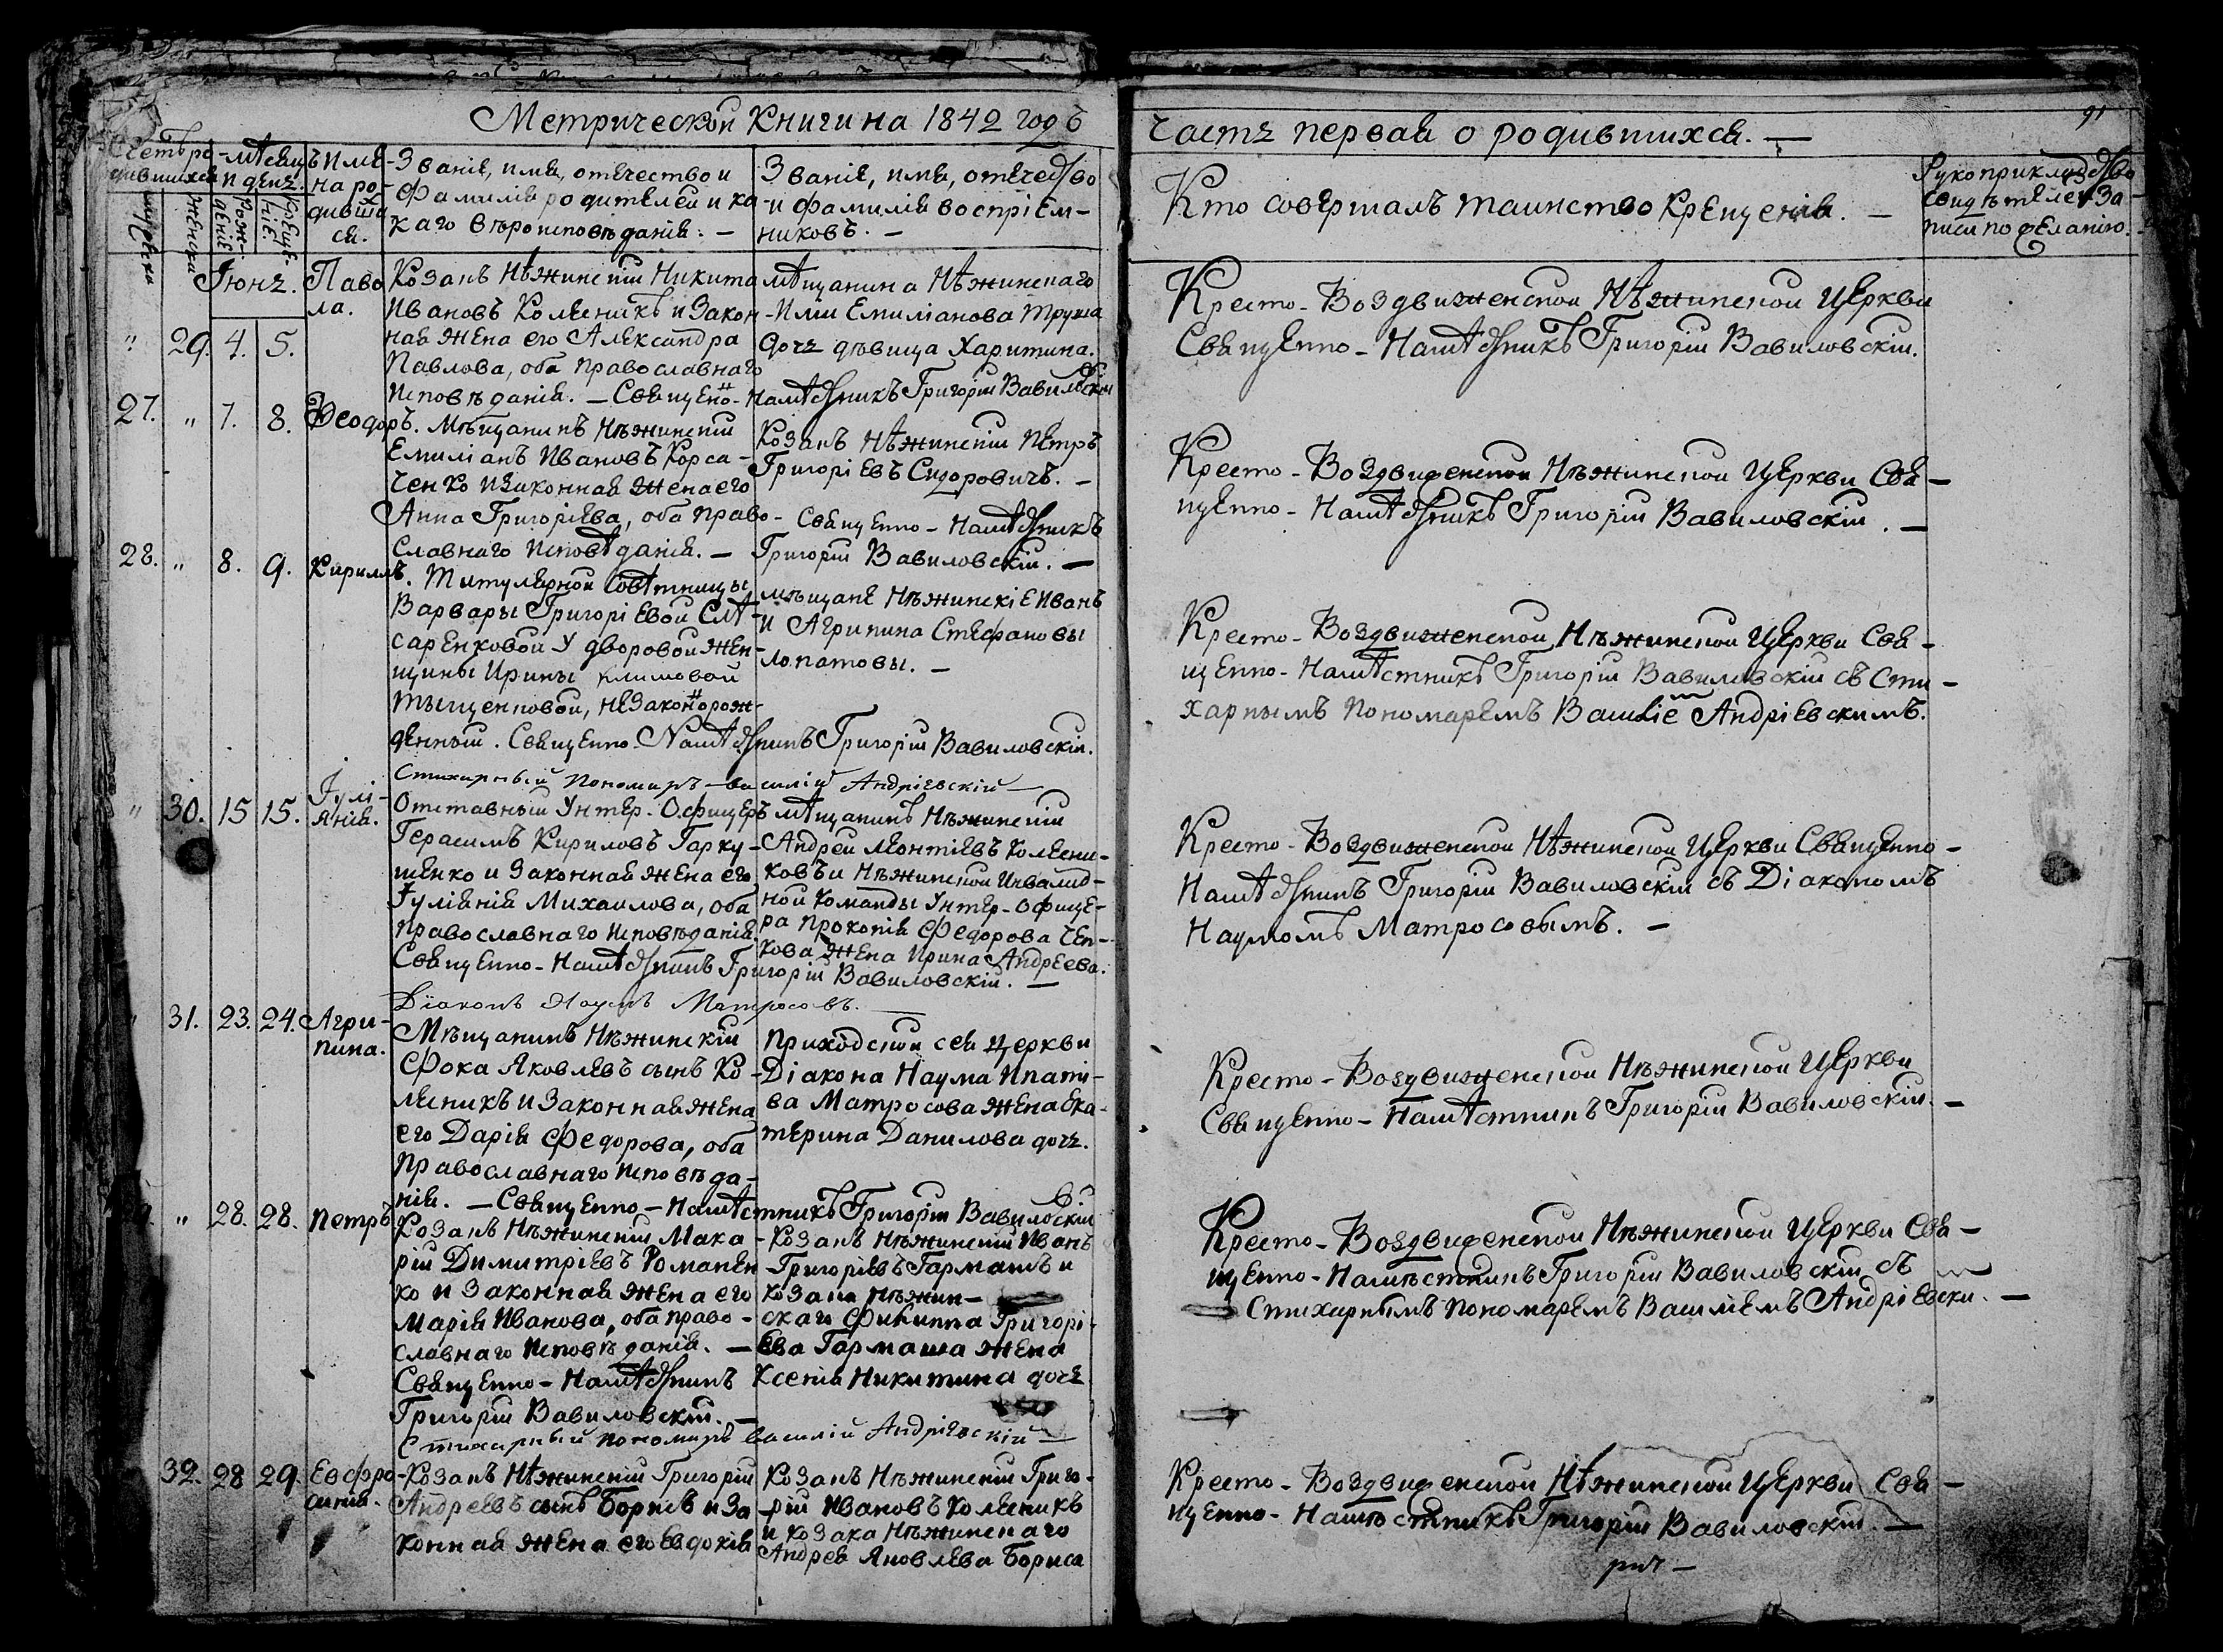 Метрической Книги на 1842 годъ
Счетъ ро-
дившихся
мужеска
женска
Мѣсяцъ
и день.
рож-
деніе
креще-
ніе.
Име-
на ро-
дивших-
ся.
Званіе, имя, отечество и
Фамилія родителей и ка
каго вѣроисповѣданія: —
Званіе, имя, отечество
и Фамилія воспріем-
никовъ. —
Іюнь.
" 29. 4. 5.
Павла.
Козакъ Нѣжинскій Никита
Ивановъ Колесникъ и Закон-
ная Жена его Александра
Павлова, оба Православнаго
Исповѣданія. — Священно-Намѣстникъ Григорій Вавиловскій
Мѣщанина Нѣжинскаго
Дочь дѣвица Харитина.
27. " 7. 8. Ѳеодоръ.
Мѣщанинъ Нѣжинскій
Емиліанъ Ивановъ Корса-
ченко и Законная Жена его
Анна Григоріева, оба Право-
славнаго Исповѣданія. —
Козакъ Нѣжинскій Петръ
Григоріевъ Сидоровичъ. —
Священно-Намѣстникъ
Григорій Вавиловскій. —
28. " 8. 9. Кириллъ.
Титулярной Совѣтницы
Варвары Григоріевой Слѣ-
саренковой у дворовой Жен-
щины Ирины Климовой
Тыщенковой, незаконорож-
денный. Священно-Намѣстникъ Григорій Вавиловскій.
Стихарный Пономарь Василій Андріевскій —
Мѣщане Нѣжинскіе Иванъ
и Агрипина Стефановы
Лопатовы. —
" 30. 15 15. Іулі-
анія.
Отставный Унтер-Офицеръ
Герасимъ Кириловъ Гарку-
шенко и Законная Жена его
Іуліанія Михаилова, оба
Православнаго Исповѣданія
Священно-Намѣстникъ Григорій Вавиловскій. —
Діаконъ Наумъ Матросовъ. —
Мѣщанинъ Нѣжинскій
Андрей Леонтіевъ Колесни-
ковъ и Нѣжинской Инвалид-
ной Команды Унтер-Офице-
ра Прокопія Федорова Чен-
кова Жена Ирина Андреева.
31. 23. 24. Агри-
пина.
Мѣщанинъ Нѣжинскій
Фока Яковлевъ сынъ Ко-
лесникъ и Законная Жена
его Дарія Федорова, оба
Православнаго Исповѣда-
нія. — Священно-Намѣстникъ Григорій Вавиловскій
Приходской сей Церкви
Діакона Наума Ипаті-
ва Матросова Жена Ека-
терина Данилова дочь.
" 28. 28. Петръ
Козакъ Нѣжинскій Мака-
рій Димитріевъ Романен-
ко и Законная Жена его
Марія Иванова, оба право-
славнаго Исповѣданія. —
Священно-Намѣстникъ
Григорій Вавиловскій. —
Стихарный Пономарь Василій Андріевскій —
Козакъ Нѣжинскій Иванъ
Григоріевъ Гармашъ и
Козака Нѣжин-
скаго Филиппа Григорі-
ева Гармаша Жена
Ксенія Никитина дочь
32. 28 29. Евфро-
синія.
Козакъ Нѣжинскій Григорій
Андреевъ сынъ Борисъ и За-
конная Жена его Евдокія
Козакъ Нѣжинскій Григо-
рій Ивановъ Колесникъ
и Козака Нѣжинскаго
Андрея Яковлева Бориса
91
Часть первая о родившихся. —
Кто совершалъ таинство Крещенія. —
Рукоприкладство
свидѣтелей за-
писи по желанію.
Кресто-Воздвиженской Нѣжинской Церкви
Священно-Намѣстникъ Григорій Вавиловскій.
Кресто-Воздвиженской Нѣжинской Церкви Свя-
щенно-Намѣстникъ Григорій Вавиловскій. —
Кресто-Воздвиженской Нѣжинской Церкви Свя-
щенно-Намѣстникъ Григорій Вавиловскій съ Сти-
харнымъ Пономаремъ Андріевскимъ.
Кресто-Воздвиженской Нѣжинской Церкви Священно-
Намѣстникъ Григорій Вавиловскій съ Діакономъ
Наумомъ Матросовымъ. —
Кресто-Воздвиженской Нѣжинской Церкви
Священно-Намѣстникъ Григорій Вавиловскій. —
Кресто-Воздвиженской Нѣжинской Церкви Свя-
щенно-Намѣстникъ Григорій Вавиловскій съ
Стихарнымъ Пономаремъ Василіемъ Андріевски. —
Кресто-Воздвиженской Нѣжинской Церкви Свя-
щенно-Намѣстникъ Григорій Вавиловскій. —